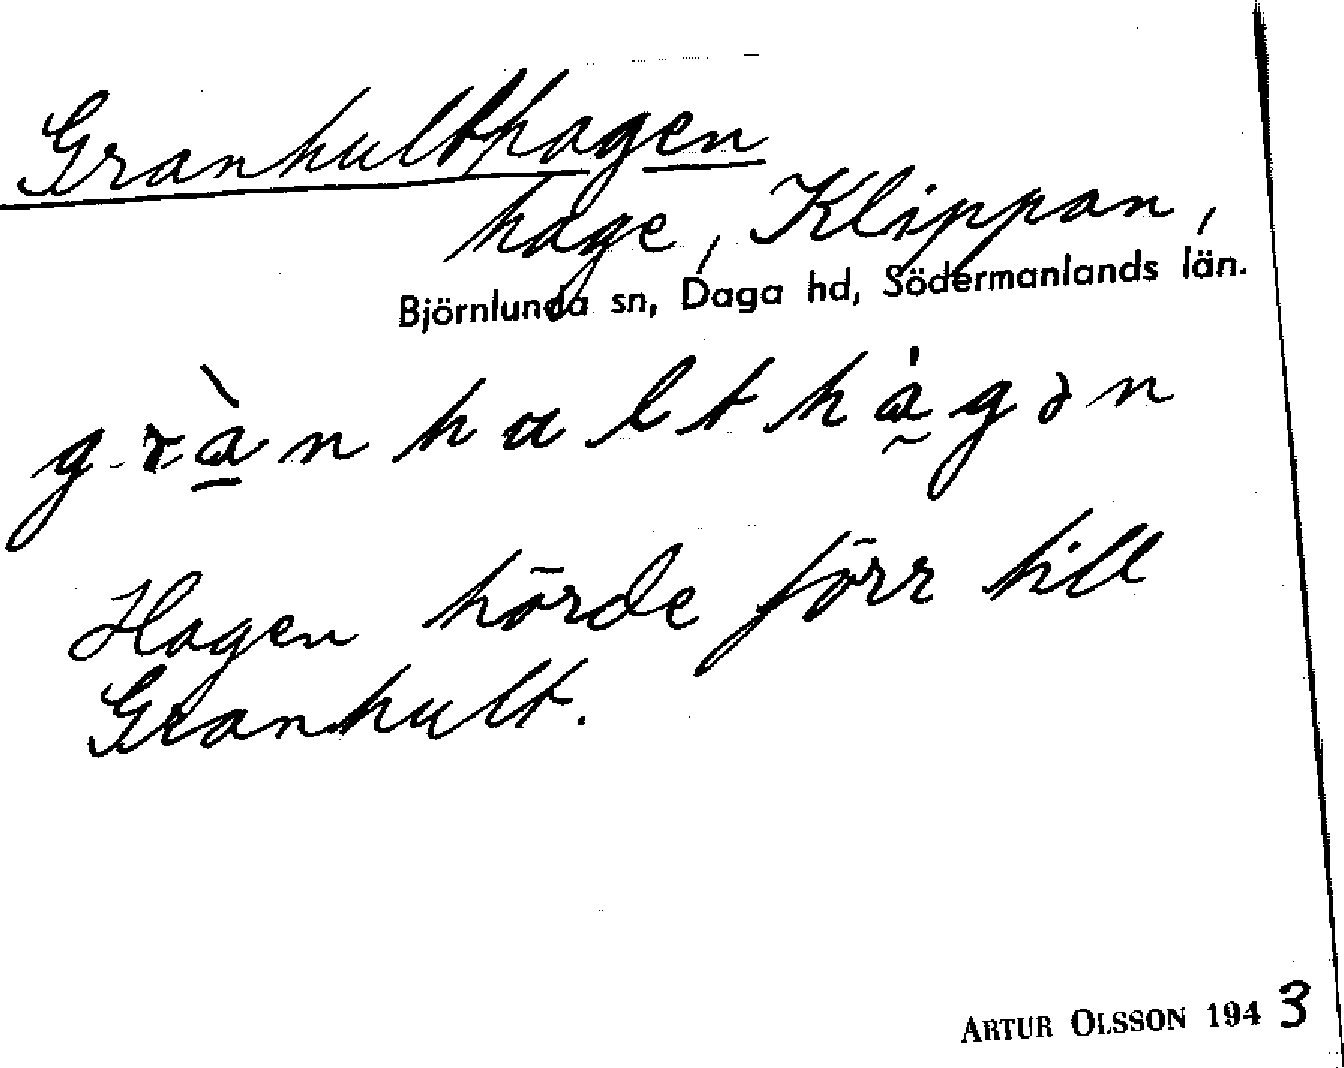 Granhulthagen
hage, Klippan,
Björnlunda sn, Daga hd, Södermanlands län.
gràn̲hulthágən
Hagen hörde förr till
Granhult.
ARTUR OLSSON 1943